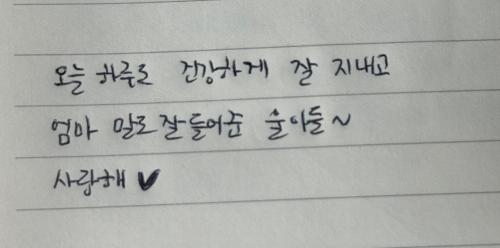 오늘 하루도 건강하게 잘 지내고
엄마 말도 잘 들어준 울아들~
사랑해 ♥